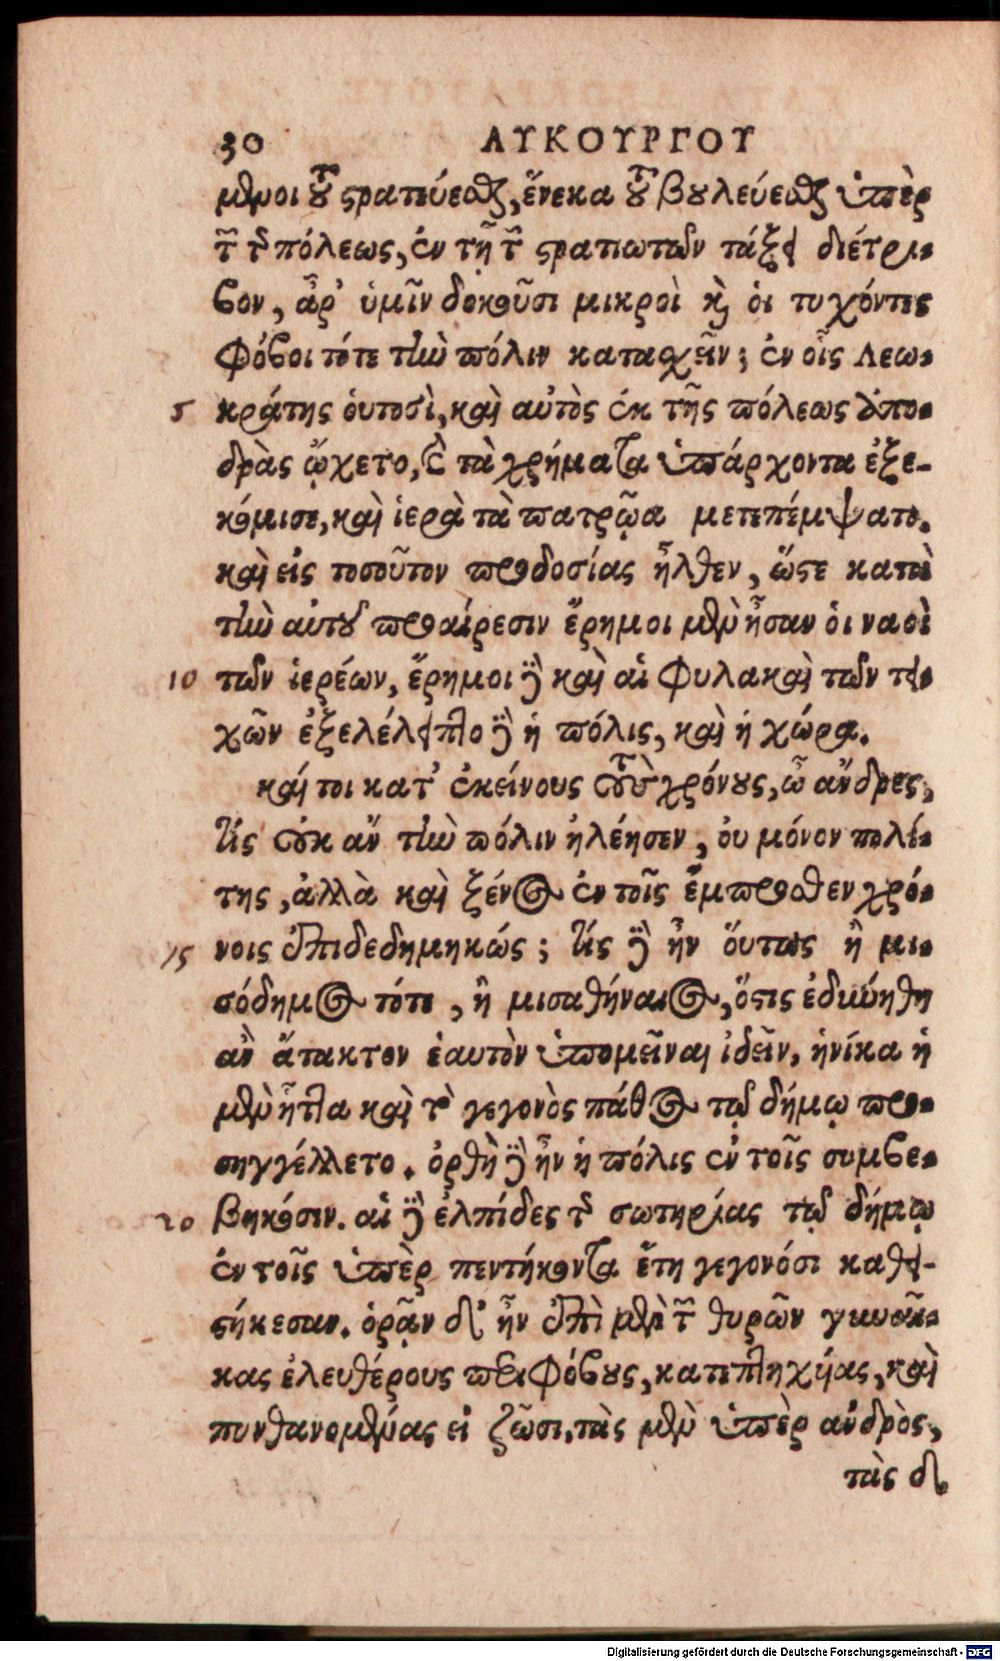 30 ΛΥΚΟΥΡΓΟΥ
μένοι τοῦ στρατεύεσθαι, ἕνεκα τοῦ βουλεύεσθαι ὑπὲρ
τῶν τῆς πόλεως, ἐν τῇ τῶν στρατιωτῶν τάξει διέτρι-
βον, ἆρ' ὑμῖν δοκοῦσι μικροὶ καὶ οἱ τυχόντες
φόβοι τότε τὴν πόλιν κατασχεῖν; ἐν οἷς Λεω-
5 κράτης ὁυτοσὶ, καὶ αὐτὸς ἐκ τῆς πόλεως ἀπο-
δρὰς ᾤχετο, καὶ τὰ χρήματα ὑπάρχοντα ἐξε-
κόμισε, καὶ ἱερὰ τὰ πατρῷα μετεπέμψατο.
καὶ εἰς τοσοῦτον προδοσίας ἦλθεν, ὥστε κατὰ
τὴν αὐτοῦ προαίρεσιν ἔρημοι μὲν ἦσαν ὁι ναοὶ
10 τῶν ἱερέων, ἔρημοι δὲ καὶ αἱ φυλακαὶ τῶν τει-
χῶν ἐξελέλειπτο δὲ ἡ πόλις, καὶ ἡ χώρα.
καί τοι κατ' ἐκείνους τοὺς χρόνους, ὦ ἄνδρες,
τίς οὐκ ἂν τὴν πόλιν ἠλέησεν, ὀυ μόνον πολί-
της, ἀλλὰ καὶ ξένος ἐν τοῖς ἔμπροσθεν χρό-
15 νοις ἐπιδεδημηκώς; τίς δὲ ἦν ὅυτως ἢ μι-
σόδημος τότε, ἢ μισαθήναιος, ὅστις ἐδυνήθη
ἂν ἄτακτον ἑαυτὸν ὑπομεῖναι ἰδεῖν, ἡνίκα ἡ
μὲν ἧττα καὶ τὸ γεγονὸς πάθος τῷ δήμῳ προ-
σηγγέλλετο. ὀρθὴ δὲ ἦν ἡ πόλις ἐν τοῖς συμβε-
20 βηκόσιν. αἱ δὲ ἐλπίδες τῆς σωτηρίας τῷ δήμῳ
ἐν τοῖς ὑπὲρ πεντήκοντα ἔτη γεγονόσι καθει-
στήκεσαν. ὁρᾷν δ' ἦν ἐπὶ μὲν τῶν θυρῶν γυναῖ-
κας ἐλευθέρους περιφόβους, κατεπτηχήας, καὶ
πυνθανομένας εἰ ζῶσι, τὰς μὲν ὑπὲρ ἀνδρὸς,
τὰς δὲ
Digitalisierung gefördert durch die Deutsche Forschungsgemeinschaft - DFG